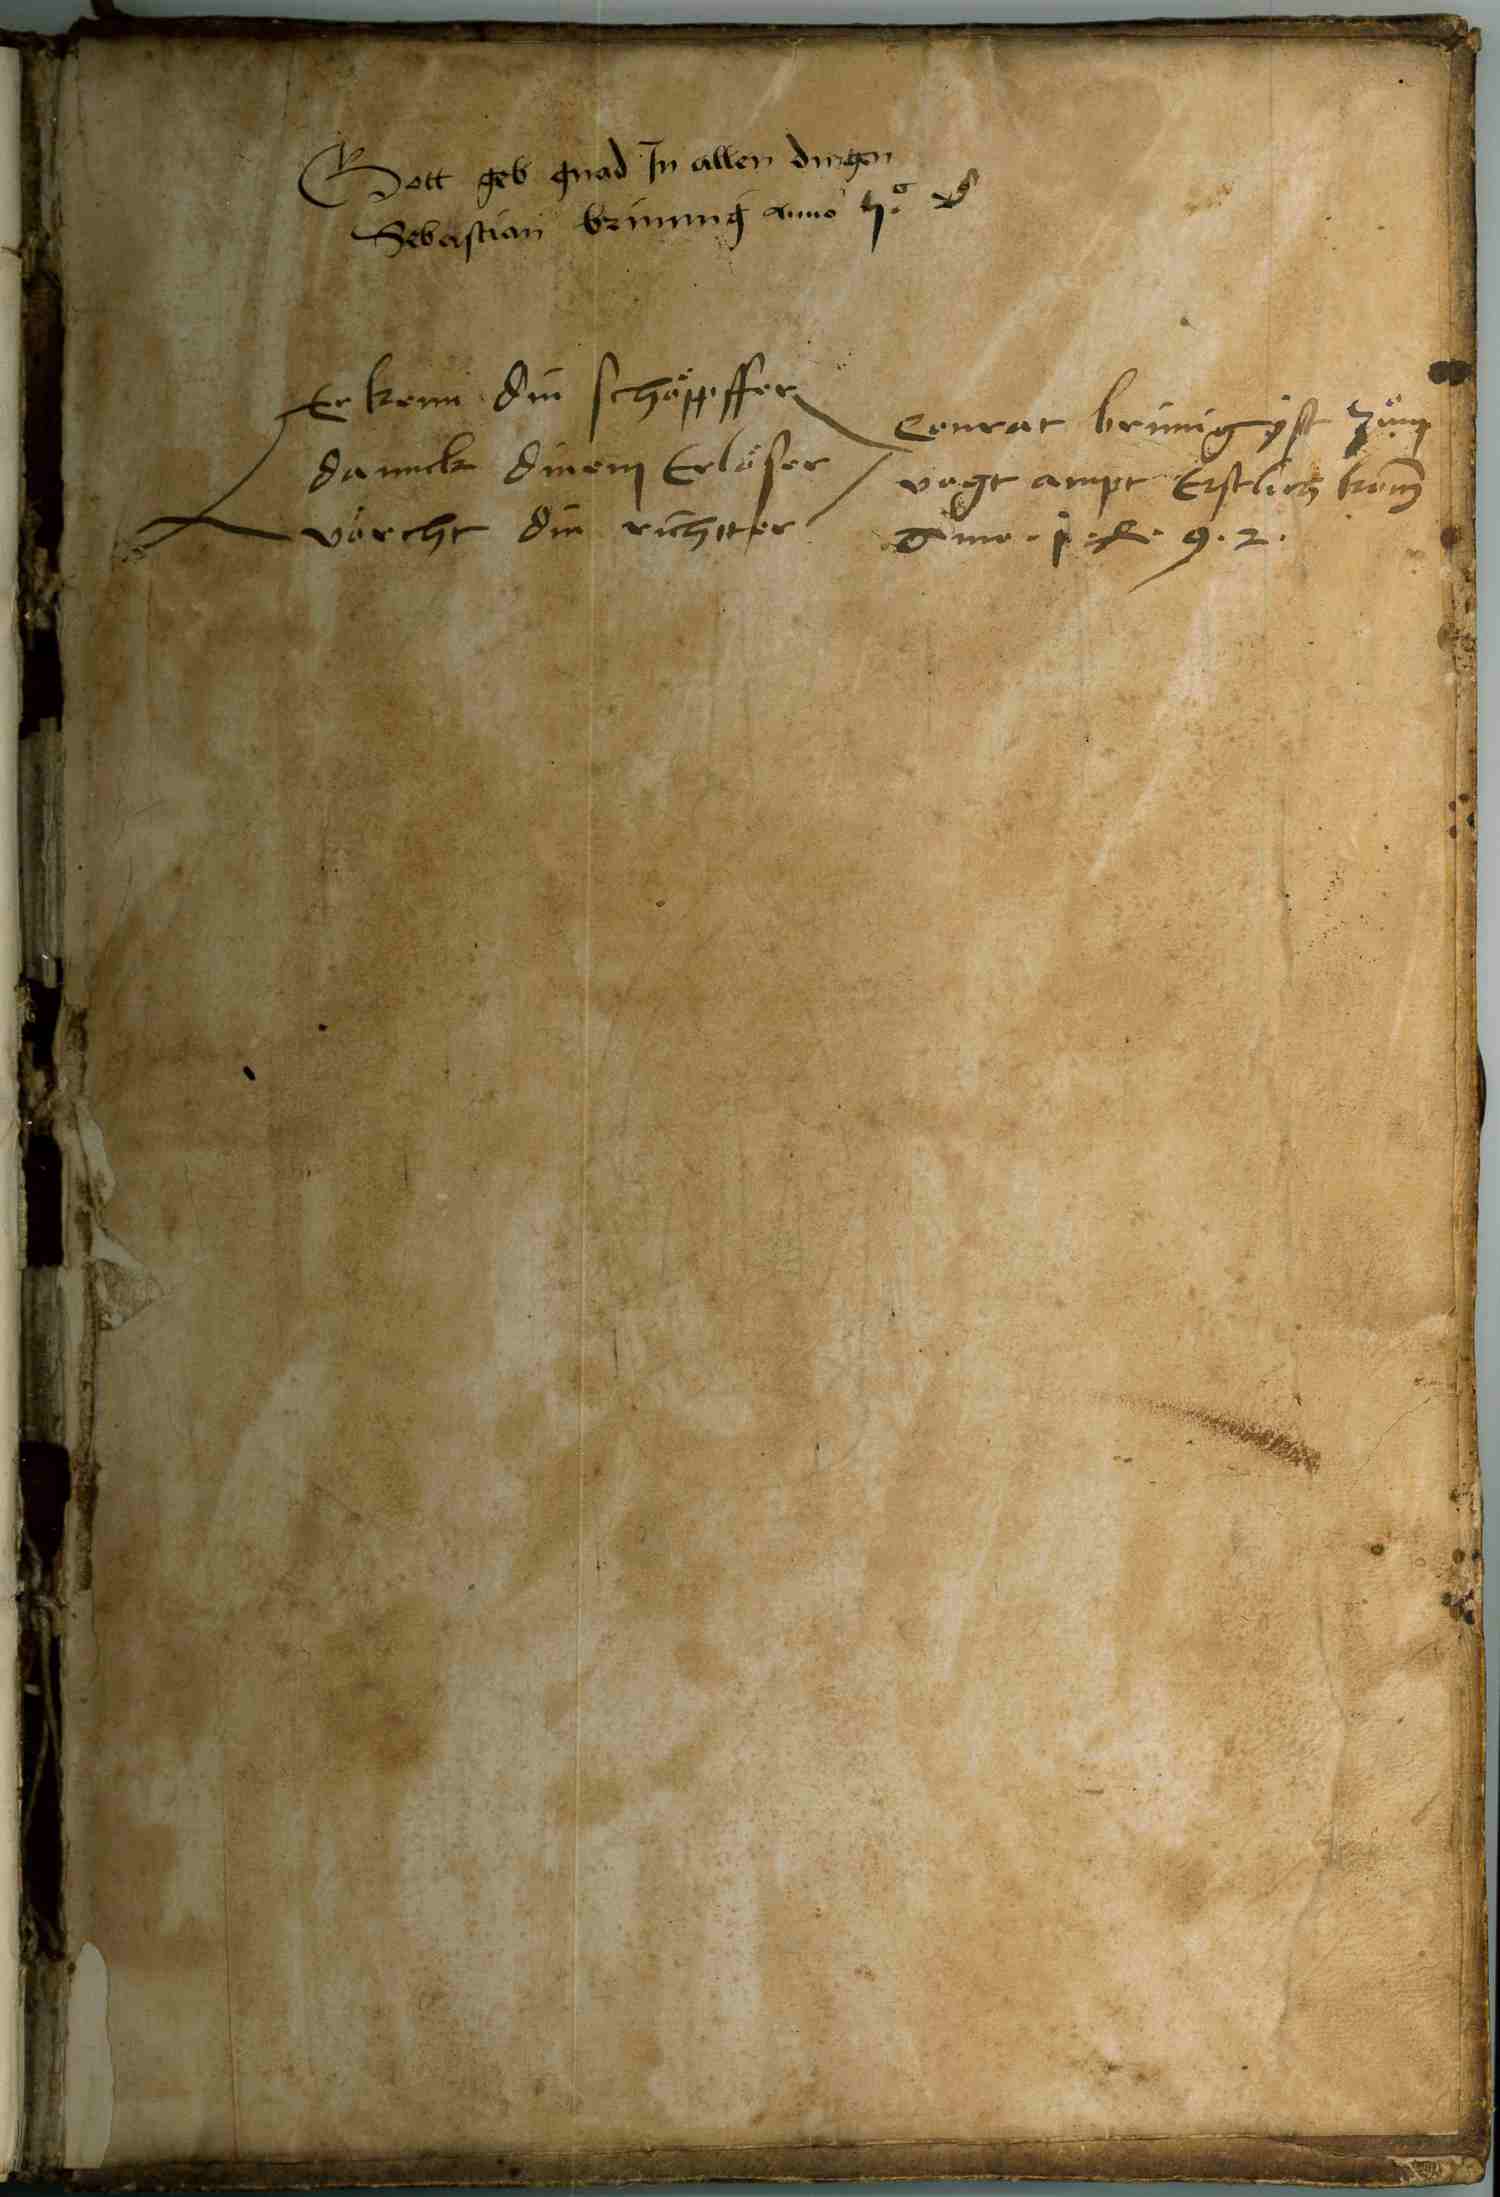 Gott geb gnad In allen dingen
Sebastian brünnig anno
Erkenn din schöpffer
dannck dinem Erlöser
vörcht din richtter
Conrat brünig yst zum
vogt ampt Erstlich kom̄
Anno . 1 . 4 . 9 . 2 .